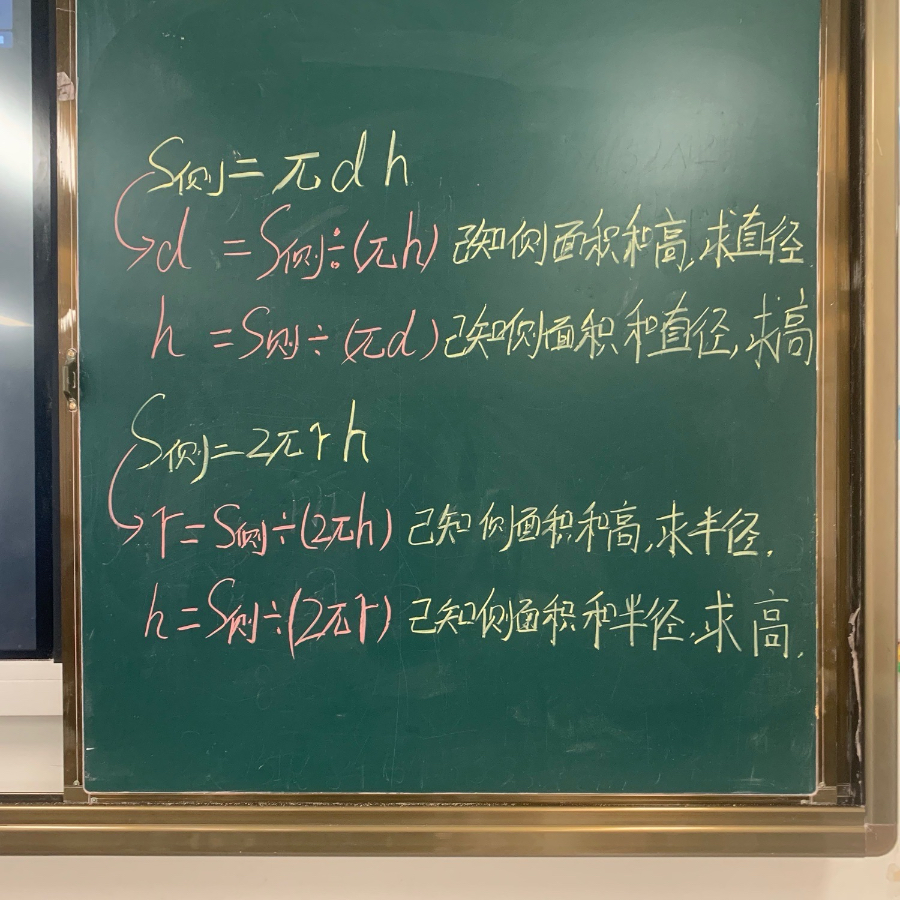 S侧=πdh
d=S侧÷(πh) 已知侧面积和高,求直径
h=S侧÷(πd) 已知侧面积和直径,求高
S侧=2πrh
r=S侧÷(2πh) 已知侧面积和高,求半径.
h=S侧÷(2πr) 已知侧面积和半径,求高.